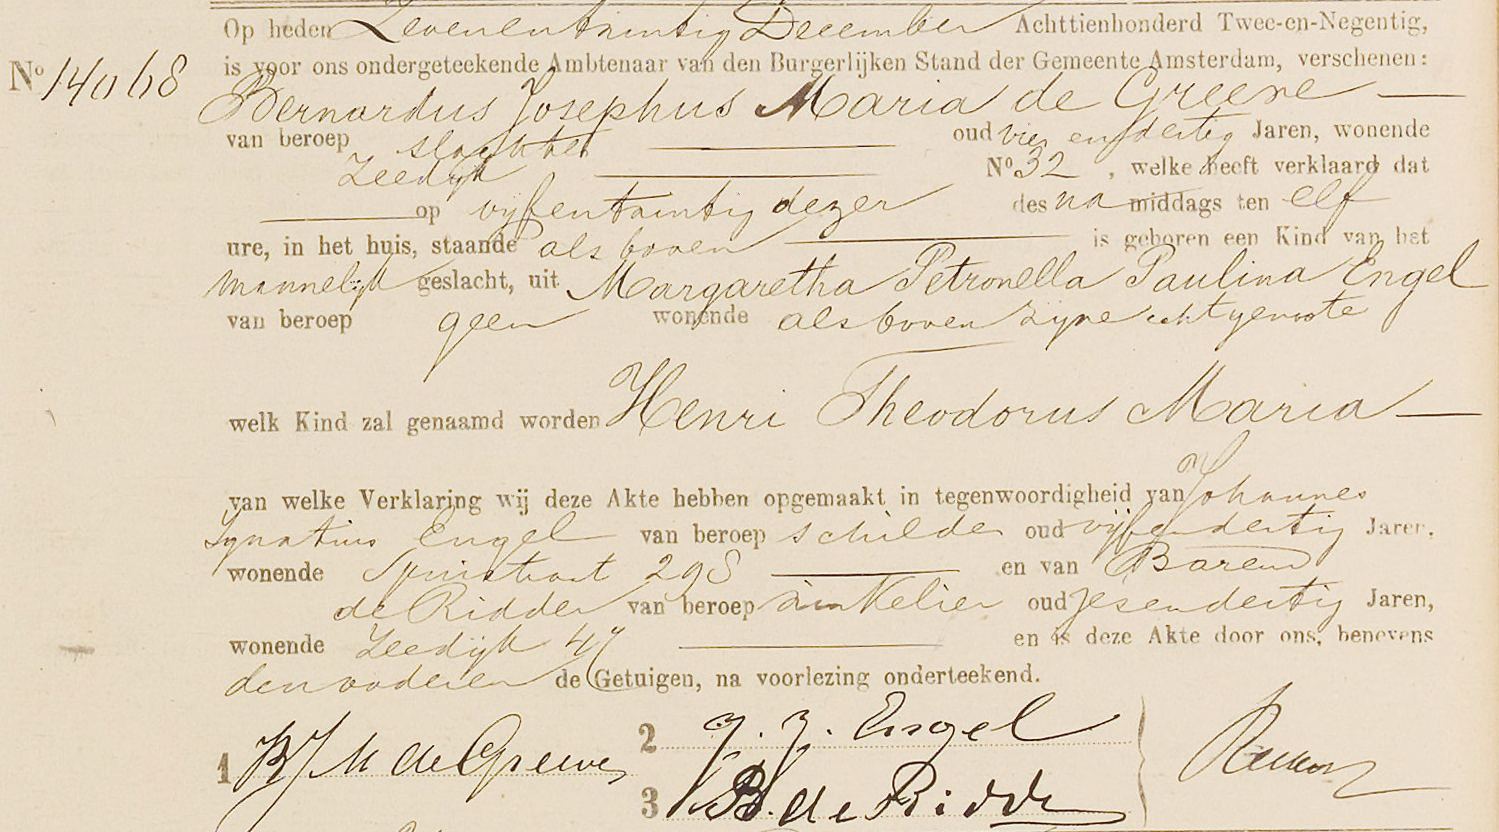 Op heden Zevenentwintig December Achttienhonderd Twee-en-Negentig,
No 14068 is voor ons ondergeteekende Ambtenaar van den Burgerlijken Stand der Gemeente Amsterdam, verschenen:
Bernardus Josephus Maria de Greeve
van beroep slachter oud vier en dertig Jaren, wonende
Zeedijk No 32, welke heeft verklaard dat
op vijfentwintig dezer des na middags ten elf
ure, in het huis, staande als boven is geboren een Kind van het
mannelijk geslacht, uit Margaretha Petronella Paulina Engel
van beroep geen wonende als boven zijne echtgenoote
welk Kind zal genaamd worden Henri Theodorus Maria
van welke Verklaring wij deze Akte hebben opgemaakt in tegenwoordigheid van Johannes
Ignatius Engel van beroep schilder oud vijfendertig Jaren,
wonende Spuistraat 298 en van Barend
de Ridder van beroep winkelier oud zesendertig Jaren,
wonende Zeedijk 47 en is deze Akte door ons, benevens
den vader en de Getuigen, na voorlezing onderteekend.
1 BJM de Greeve
2 J. I. Engel
3 B. de Ridder